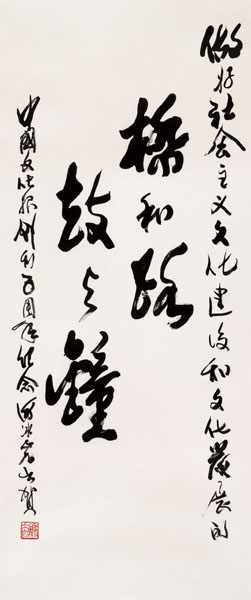 做好社会主义文化建设和文化發展的
橋和路
鼓与鐘
中國文化报创刊五周年纪念 贺